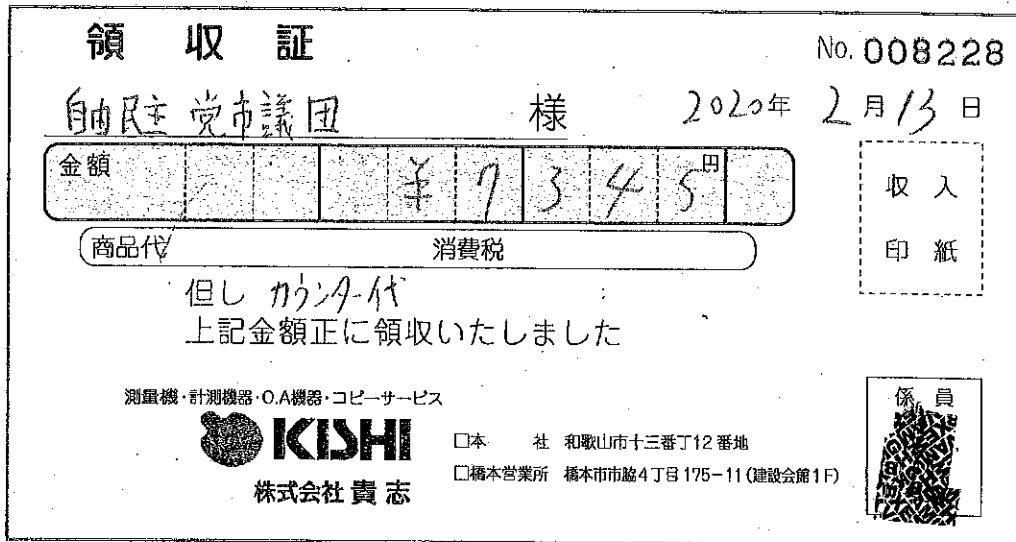 領収証
No. 008228
自由民主党市議団 様
2020年 2月13日
金額 ¥7345円
収入
印紙
商品代 消費税
但し カウンター代
上記金額正に領収いたしました
測量機・計測機器・O.A機器・コピーサービス
KISHI
株式会社 貴志
□本 社 和歌山市十三番丁12番地
□橋本営業所 橋本市市脇4丁目175-11(建設会館1F)
係員